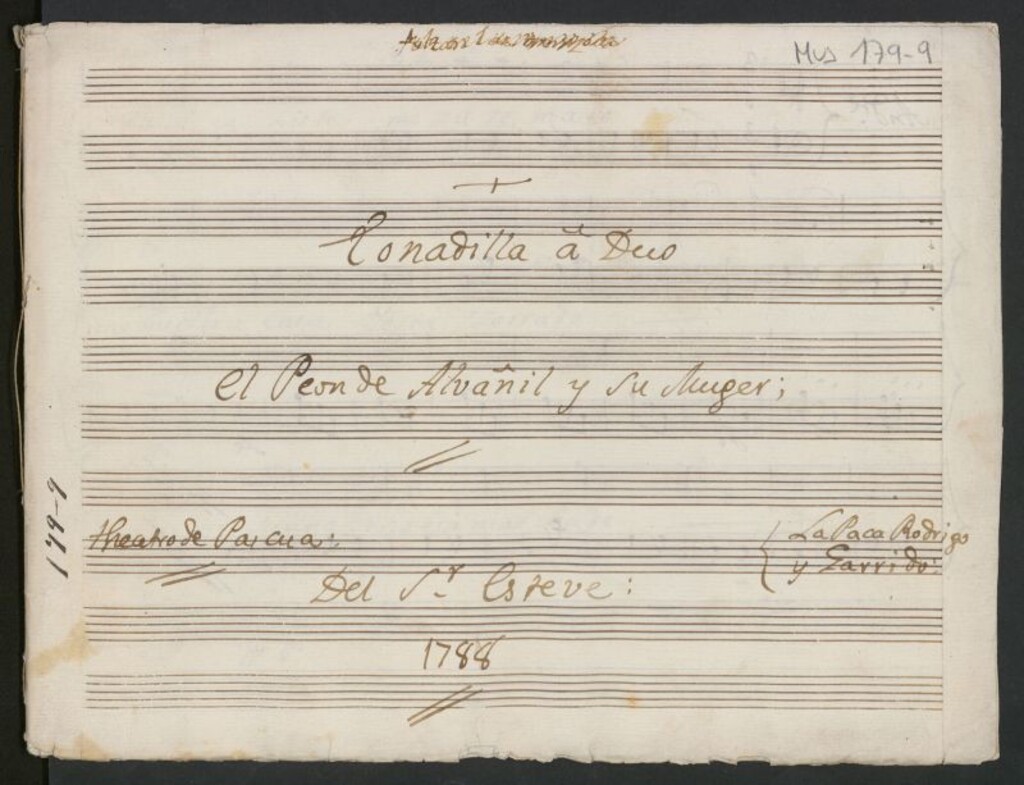 Mus 179-9
Tonadilla â Duo
el Peon de Alvañil y su Muger;
theatro de Pascua:
La Paca Rodrigo
y Garrido:
Del Sr. Esteve:
1788
179-9